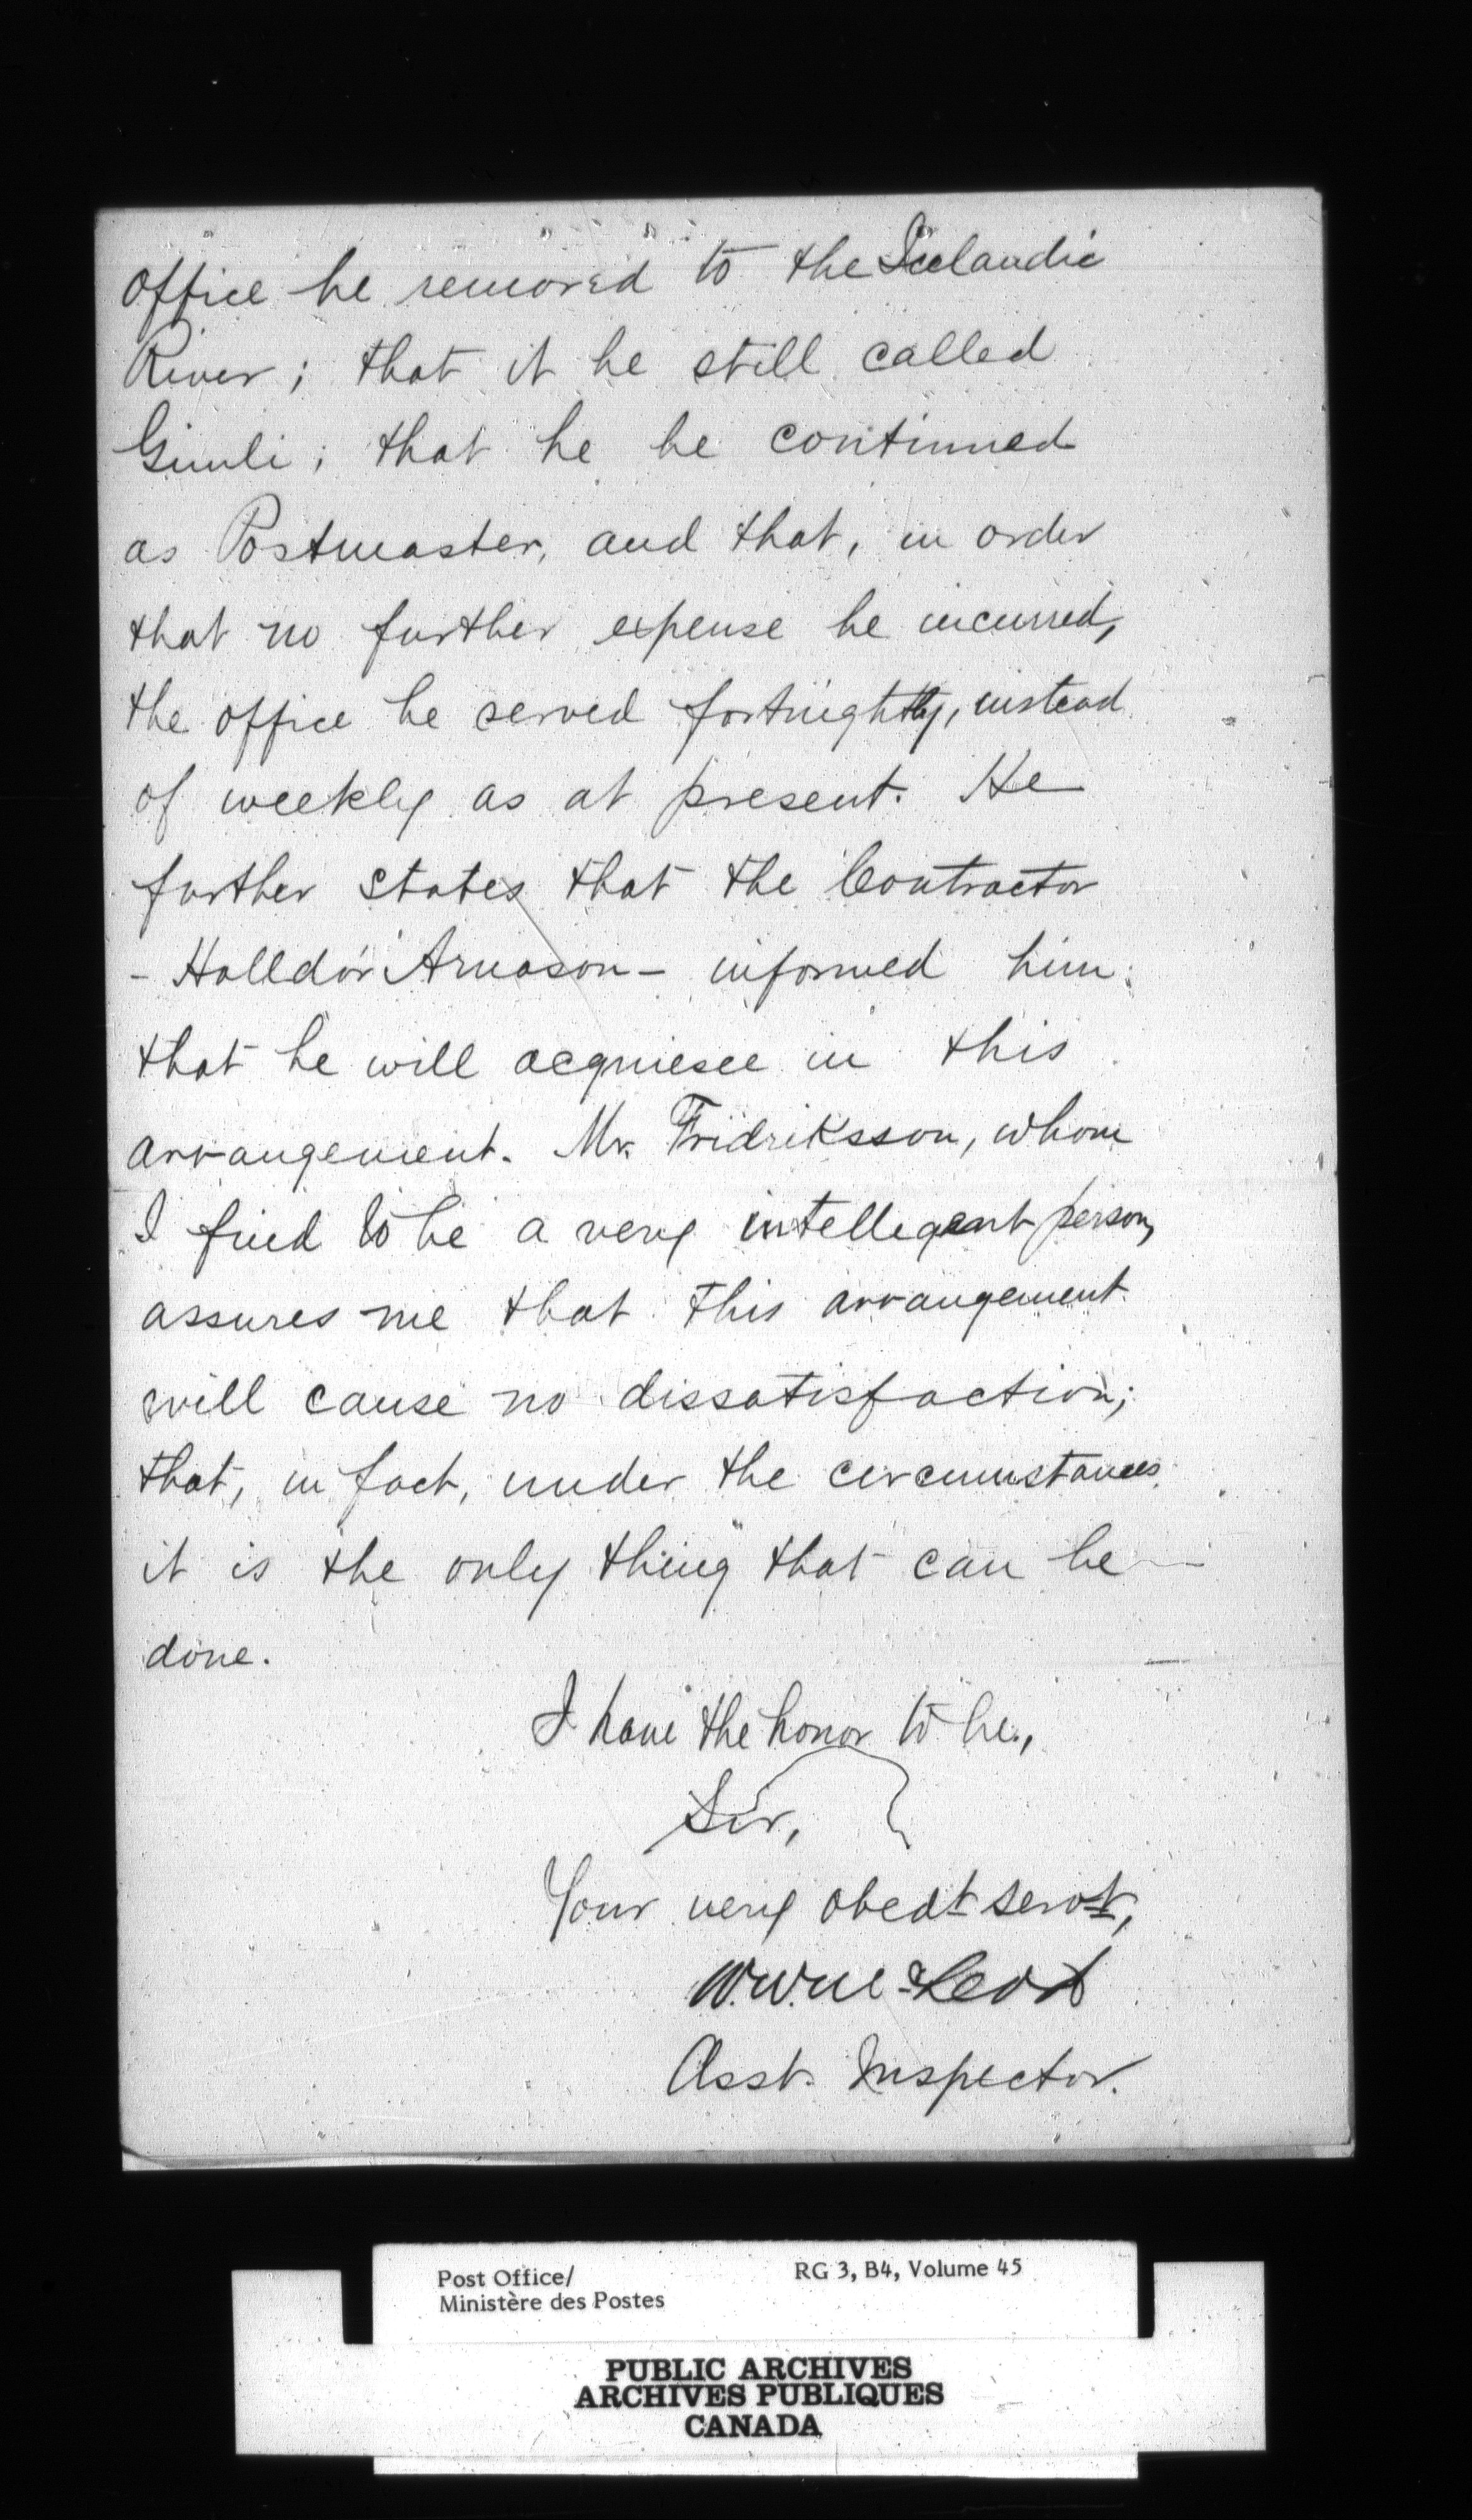 office be removed to the Icelandic
River; that it be still called
Gimli; that he be continued
as Postmaster, and that, in order
that no further expense be incurred,
the office be served fortnightly, instead
of weekly as at present. He
further states that the Contractor
- Halldór Arnason - informed him
that he will acquiesce in this
arrangement. Mr. Fridriksson, whom
I find to be a very intellegent person,
assures me that this arrangement
will cause no dissatisfaction;
that, in fact, under the circumstances
it is the only thing that can be
done.
I have the honor to be,
Sir,
Your very obedt servt,
W.W. McLeod
Asst. Inspector.
Post Office/
Ministère des Postes
RG 3, B4, Volume 45
PUBLIC ARCHIVES
ARCHIVES PUBLIQUES
CANADA